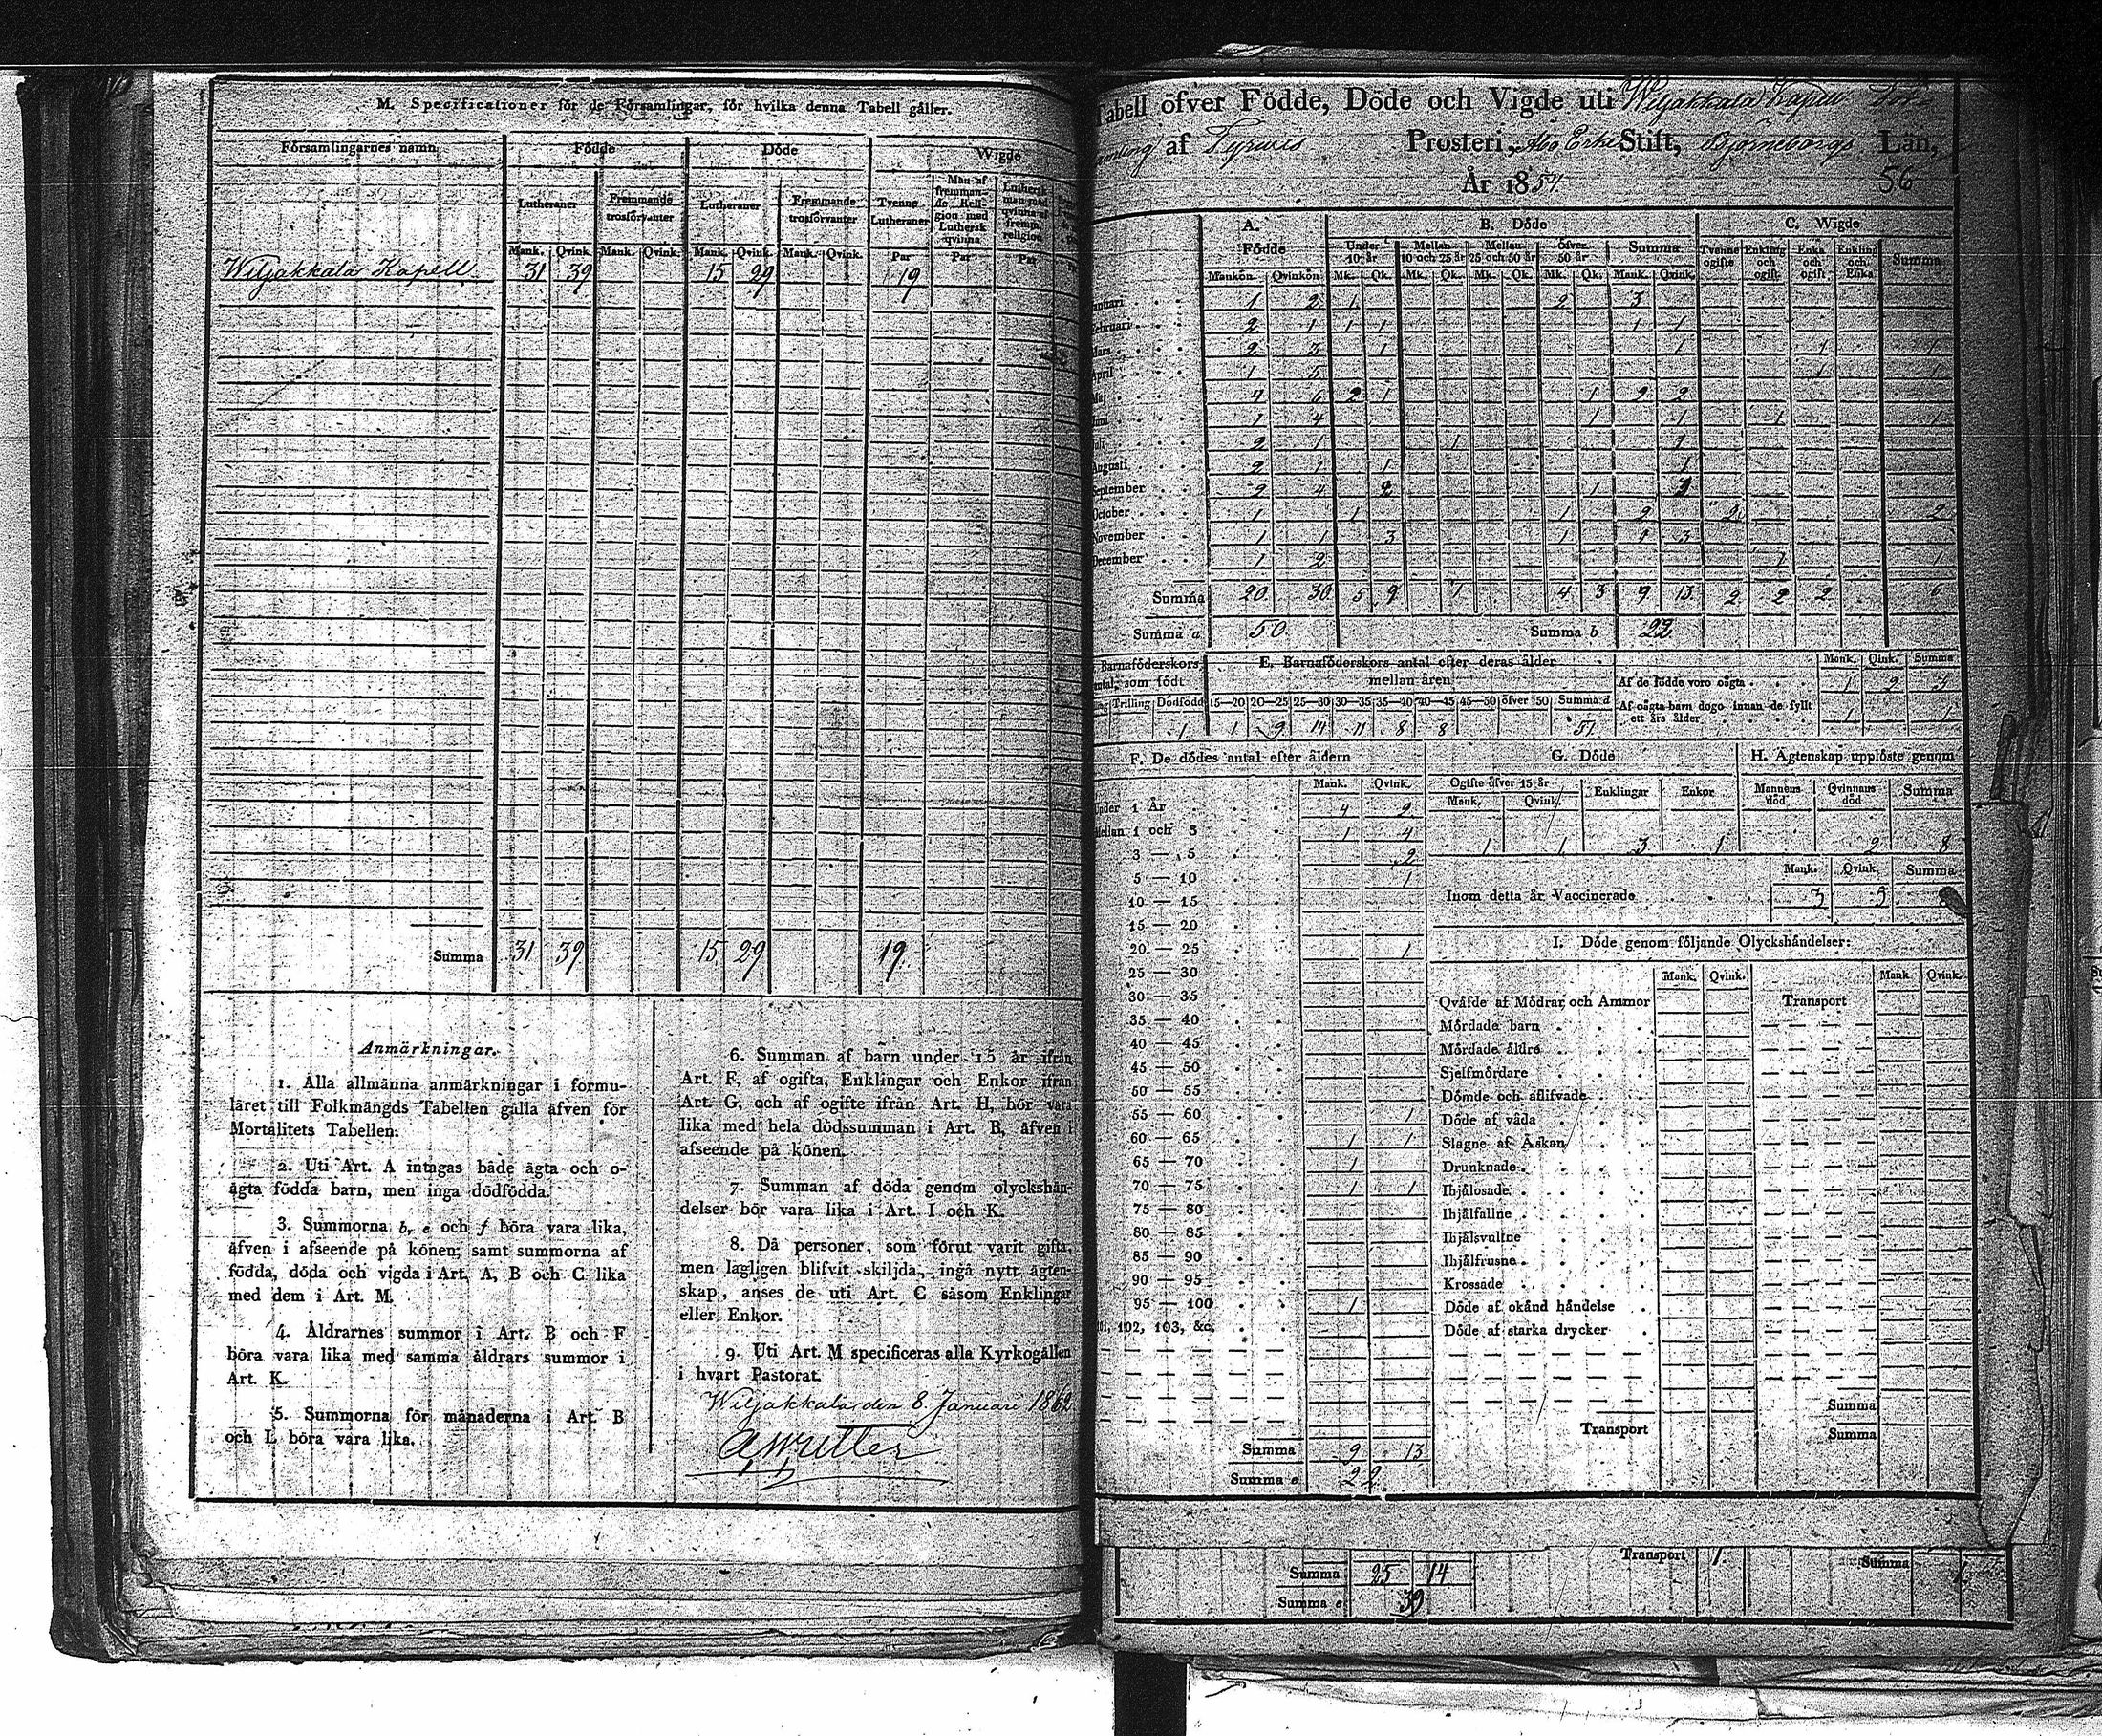 M. Specificationer för de Församlingar, för hvilka denna Tabell gäller.
Församlingarnes namn Födde Döde Wigde
Lutheraner Fremmande trosförvanter Lutheraner Fremmande trosförvanter Tvenne Lutheraner Man af fremmande Religion med Luthersk qvinna Luthersk man med qvinna af fremm. religion
Mank. Qvink. Mank. Qvink. Mank. Qvink. Mank. Qvink. Par Par Par
Wiljakkala Kapell 31 39 15 29 19
Summa 31 39 15 29 19
Anmärkningar.
1. Alla allmänna anmärkningar i formu-
läret till Folkmängds Tabellen gälla äfven för
Mortalitets Tabellen.
2. Uti Art. A intagas både ägta och o-
ägta födda barn, men inga dödfödda.
3. Summorna b, e och f böra vara lika,
äfven i afseende på könen; samt summorna af
födda, döda och vigda i Art. A, B och C lika
med dem i Art. M.
4. Åldrarnes summor i Art. B och F
böra vara lika med samma åldrars summor i
Art. K.
5. Summorna för månaderna i Art. B
och L böra vara lika.
6. Summan af barn under 15 år ifrån
Art. F, af ogifta, Enklingar och Enkor ifrån
Art. G, och af ogifte ifrån Art. H, bör vara
lika med hela dödssumman i Art. B, äfven i
afseende på könen.
7. Summan af döda genom olyckshän-
delser bör vara lika i Art. I och K.
8. Då personer, som förut varit gifta,
men lagligen blifvit skiljda, ingå nytt ägten-
skap, anses de uti Art. C såsom Enklingar
eller Enkor.
9. Uti Art. M specificeras alla Kyrkogällen
i hvart Pastorat.
Wiljakkala den 8 Januari 1862
Tabell öfver Födde, Döde och Vigde uti Wiljakkala Kapell
af Tyrwis Prosteri, Åbo Erke Stift, Björneborgs Län,
År 1854 56
A. Födde B. Döde C. Wigde
Under 10 år Mellan 10 och 25 år Mellan 25 och 50 år Öfver 50 år Summa Tvenne ogifte Enkling och ogift Enka och ogift Enkling och Enka Summa
Mankön Qvinkön Mk. Qk. Mk. Qk. Mk. Qk. Mk. Qk. Mank. Qvink.
Januari 1 2 1 2 3
Februari 2 1 1 1 1 1
Mars 2 3 1 1 1 1
April 1 5 1 1
Maj 4 6 2 1 1 2 2
Juni 1 4 1 1 1 1
Juli 2 1 1 1
Augusti 2 1 1 1
September 2 4 2 1 3
October 1 1 1 2 2 2
November 1 1 3 1 1 3
December 1 2 1 1
Summa 20 30 5 9 1 4 3 9 13 2 2 2 6
Summa a 50 Summa b 22
Barnaföderskors antal, som födt
Trilling Dödfödd
1
E. Barnaföderskors antal efter deras ålder
mellan åren
15—20 20—25 25—30 30—35 35—40 40—45 45—50 öfver 50 Summa d
1 9 14 11 8 8 51
Mank. Qink. Summa
Af de födde voro oägta 1 2 3
Af oägta barn dogo innan de fyllt
ett års ålder 1 1
F. De dödes antal efter åldern
Mank. Qvink.
Under 1 År 4 2
Mellan 1 och 3 1 4
3 — 5 2
5 — 10 1
10 — 15
15 — 20
20 — 25 1
25 — 30
30 — 35
35 — 40
40 — 45
45 — 50
50 — 55
55 — 60 1
60 — 65 1 1
65 — 70 1
70 — 75 1 1
75 — 80
80 — 85
85 — 90
90 — 95
95 — 100 1
101, 102, 103, &c.
Summa 9 13
Summa e 22
G. Döde
Ogifte öfver 15 år Enklingar Enkor
Mank. Qvink.
1 1 3 1
H. Ägtenskap upplöste genom
Mannens död Qvinnans död Summa
2 8
Mank. Qvink. Summa
Inom detta år Vaccinerade 3 5
I. Döde genom följande Olyckshändelser:
Mank. Qvink. Mank. Qvink.
Qväfde af Mödrar och Ammor Transport
Mördade barn
Mördade äldre
Sjelfmördare
Dömde och aflifvade
Döde af våda
Slagne af Åskan
Drunknade
Ihjälosade
Ihjälfallne
Ihjälsvultne
Ihjälfrusne
Krossade
Döde af okänd händelse
Döde af starka drycker
Summa
Transport Summa
Transport 1 Summa 1
Summa 25 14
Summa e 39